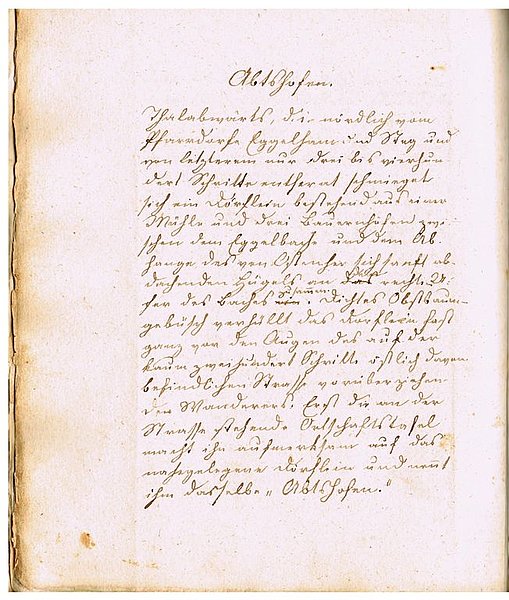 Abtshofen.
Thalabwärts, d. i. nördlich vom
Pfarrdorfe Eggelham und Steg und
von letzterem nur drei bis vierhun
dert Schritte entfernt schmieget
sich ein Dörflein bestehend aus einer
Mühle und drei Bauernhöfen zwi
schen dem Eggelbache und dem Ab-
hange des von Osten her sich sanft ab-
dachenden Hügels an das rechte U-
fer des Baches zusammen. Dichtes Obstbaum-
gebüsch verhüllt das Dörflein fast
ganz vor den Augen des auf der
kaum zweihundert Schritte östlich davon
befindlichen Strasse vorüberziehen-
den Wanderers. Erst die an der
Strasse stehende Ortschaftstafel
macht ihn aufmerksam auf das
nahegelegene Dörflein und nennt
ihm dasselbe „Abtshofen."